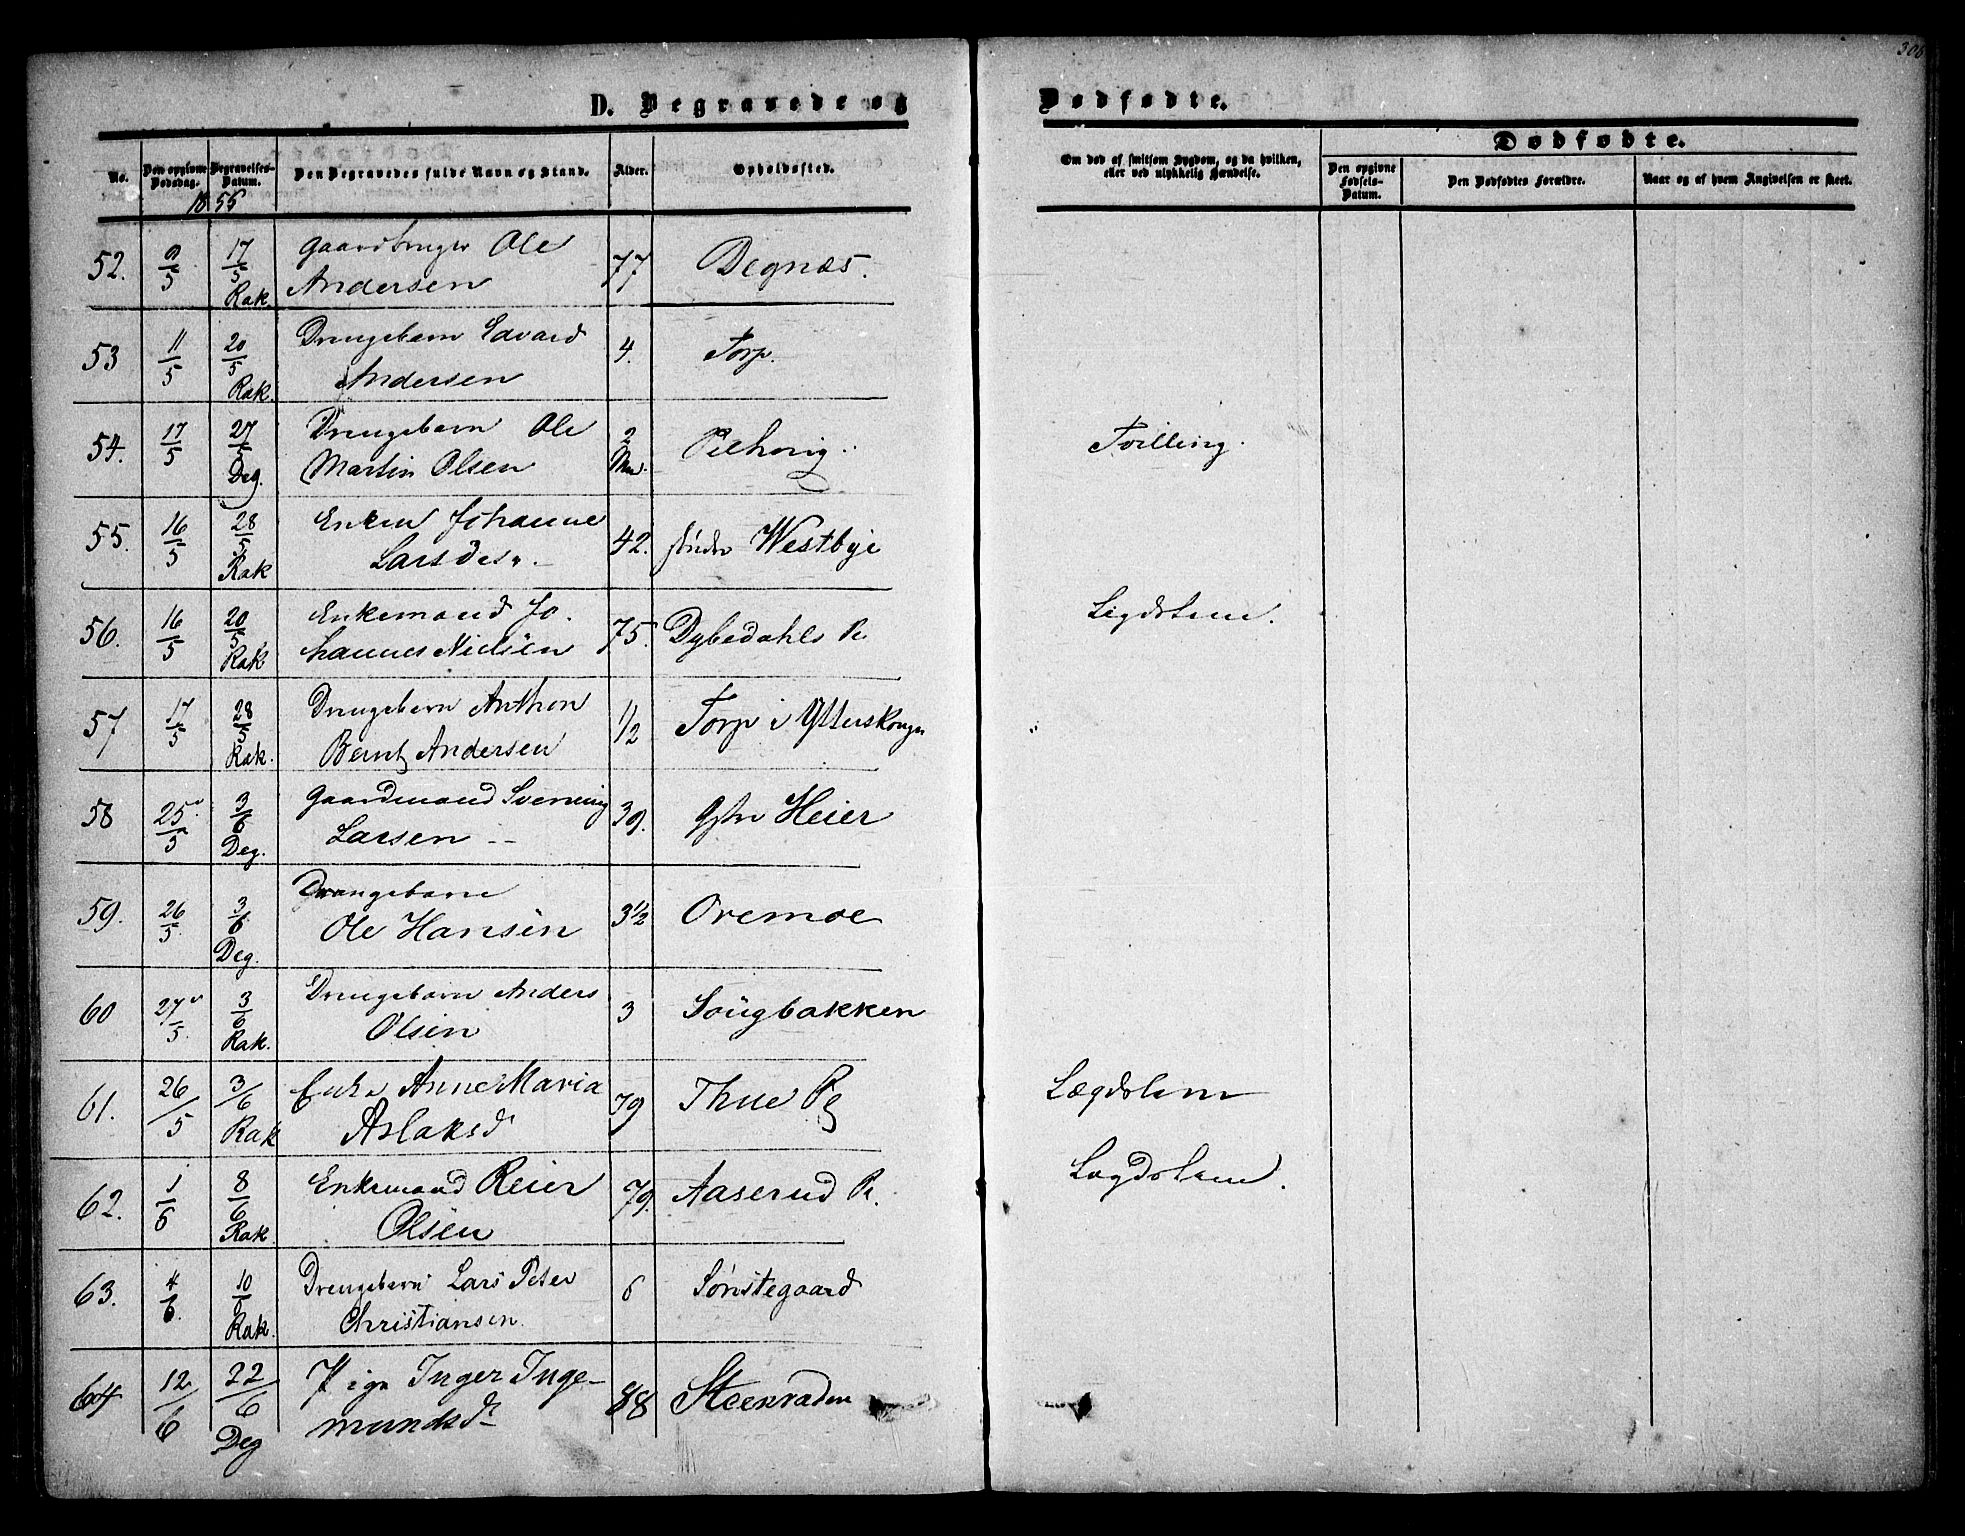 306
D. Begravede og Dødfødte.
No. Den opgivne Dødsdag. Begravelses-Datum. Den Begravedes fulde Navn og Stand. Alder. Opholdssted. Om død af smitsom Sygdom, og da hvilken, eller ved ulykkelig Hændelse. Dødfødte. Den opgivne Fødsels-Datum. Den Dødfødtes Forældre. Naar og af hvem Angivelsen er skeet.
1855
52. 9/5 17/5 Gaardbruger Ole 77 Degnæs.
Rak. Andersen
53 11/5 20/5 Drengebarn Edvard 4. Torp.
Rak. Andersen
54. 17/5 27/5 Drengebarn Ole 2 Tvilling.
Deg. Martin Olsen
55. 16/5 28/5 Enken Johanne 42. Westbye
Rak Larsdes„
56. 16/5 20/5 Enkemand Jo. 75. Dybedahls Pl Legdslem.
Rak hannes Nielsen
57 17/5 28/5 Drengebarn Anthon 1/2 Torp i Ytterskougn
Rak. Bernt Andersen
58 25/5 3/6 Gaardmand Svenning 39. Heier
Deg. Larsen
59. 26/5 3/6 Drengebarn 3½ Oremoe
Deg. Ole Hansen
60 27/5 3/6 Drengebarn Anders 3 Sougbakken
Rak. Olsen
61. 26/5 3/6 Enke Anne Maria 79 Thue Pl Lægdslem
Rak Aslaksd
62. 1/6 8/6 Enkemand Reier 79. Aaserud Pl. Lægdslem.
Rak Olsen
63. 4/6 10/6 Drengebarn Lars Peter 6 Sønstegaard
Rak. Christiansen.
64 12/6 22/6 Pige Inger Inge- 88 Steensraden
Deg mundsd